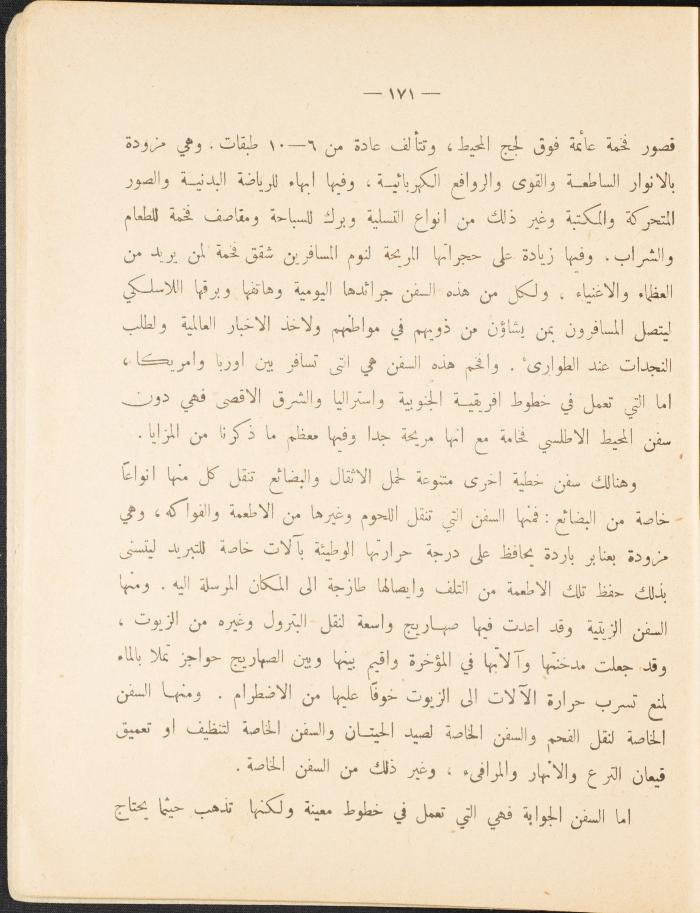 — ١٧١ —
قصور فخمة عائمة فوق لجج المحيط ، وتتألف عادة من ٦—١٠ طبقات . وهي مزودة
بالانوار الساطعـة والقوى والروافع الكهربائيـة ، وفيها ابهاء للرياضة البدنيـة والصور
المتحركة والمكتبة وغير ذلك من انواع التسلية وبرك للسباحة ومقاصف فخمة للطعام
والشراب . وفيها زيادة على حجراتها المريحة لنوم المسافرين شقق فخمة لمن يريد من
العظماء والاغنياء . ولكل من هذه السفن جرائدها اليومية وهاتفها وبرقها اللاسلـكي
ليتصل المسافرون بمن يشاؤن من ذويهم في مواطنهم ولاخذ الاخبار العالمية ولطلب
النجدات عند الطوارىء . وافخم هذه السفن هي التى تسافر بين اوربا وامريكا ،
اما التي تعمل في خطوط افريقيـة الجنوبية واستراليا والشرق الاقصى فهي دون
سفن المحيط الاطلسي فخامة مع انها مريحة جدا وفيها معظم ما ذكرنا من المزايا .
وهنالك سفن خطية اخرى متنوعة لحمل الاثقال والبضائع تنقل كل منها انواعاً
خاصة من البضائع : فمنها السفن التي تنقل اللحوم وغيرها من الاطعمة والفواكه ، وهي
مزودة بعنابر باردة يحافظ على درجة حرارتها الوطيئة بآلات خاصة للتبريد ليتسنى
بذلك حفظ تلك الاطعمة من التلف وايصالها طازجة الى المكان المرسلة اليه . ومنها
السفن الزيتية وقد اعدت فيها صهـاريج واسعة لنقل البترول وغيره من الزيوت ،
وقد جعلت مدخنتها وآلاتها في المؤخرة واقيم بينها وبين الصهاريج حواجز تملا بالماء
لمنع تسرب حرارة الآلات الى الزيوت خوفاً عليها من الاضطرام . ومنهـا السفن
الخاصة لنقل الفحم والسفن الخاصة لصيد الحيتـان والسفن الخاصة لتنظيف او تعميق
قيعان الترع والانهار والمرافىء ، وغير ذلك من السفن الخاصة .
اما السفن الجوابة فهي التي تعمل في خطوط معينة ولكنها تذهب حيثما يحتاج